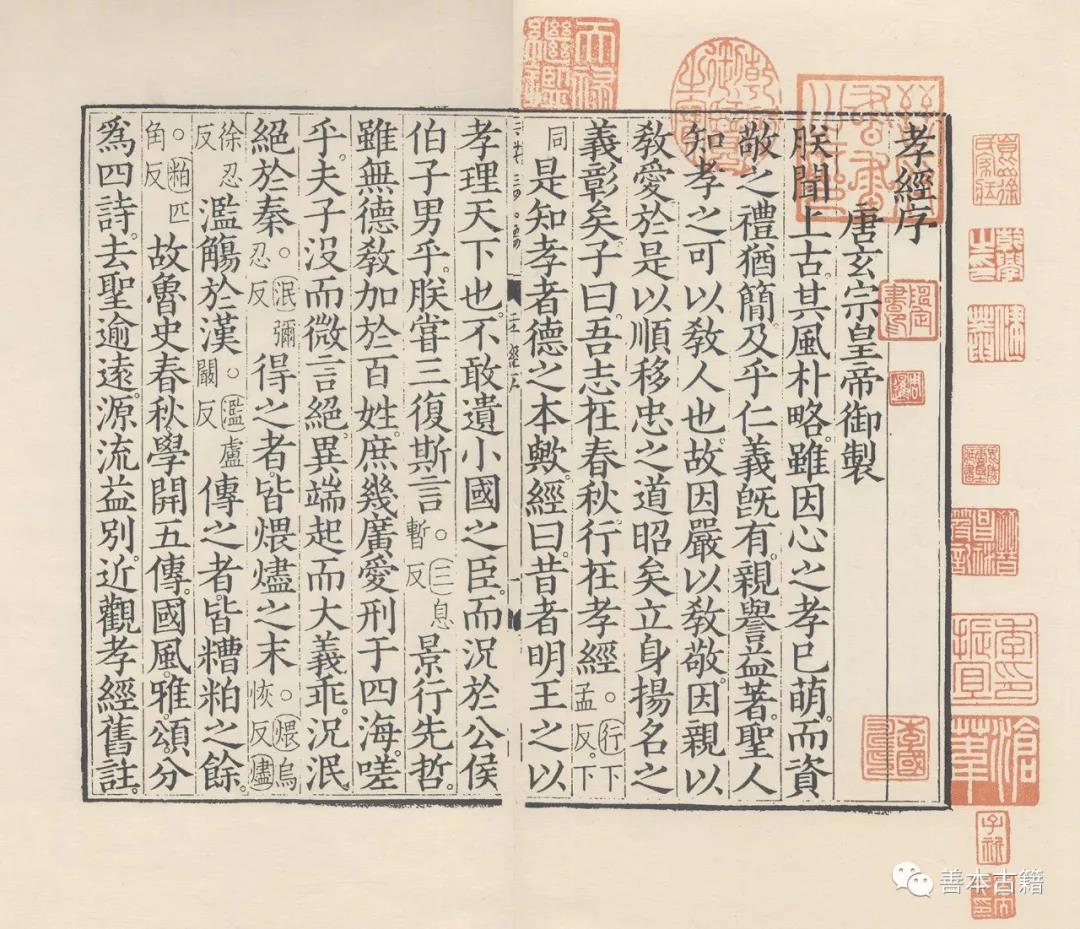 孝經序
唐玄宗皇帝御製
朕聞上古。其風朴略。雖因心之孝已萌。而資
敬之禮猶簡。及乎仁義旣有。親譽益著。聖人
知孝之可以敎人也。故因嚴以敎敬。因親以
敎愛。於是以順移忠之道昭矣。立身揚名之
義彰矣。子曰。吾志在春秋。行在孝經。行下孟反。下
同是知孝者德之本歟。經曰。昔者明王之以
孝理天下也。不敢遺小國之臣。而況於公侯
伯子男乎。朕嘗三復斯言。三息暫反景行先哲。
雖無德敎加於百姓。庶幾廣愛刑于四海。嗟
乎。夫子沒而微言絕。異端起而大義乖。況泯
絕於秦。泯彌忍反得之者。皆煨燼之末。煨烏恢反燼
徐忍反濫觴於漢。濫盧㘎反傳之者。皆糟粕之餘。
。粕匹角反故魯史春秋。學開五傳。國風。雅頌。分
爲四詩。去聖逾遠。源流益別。近觀孝經舊註。
善本古籍